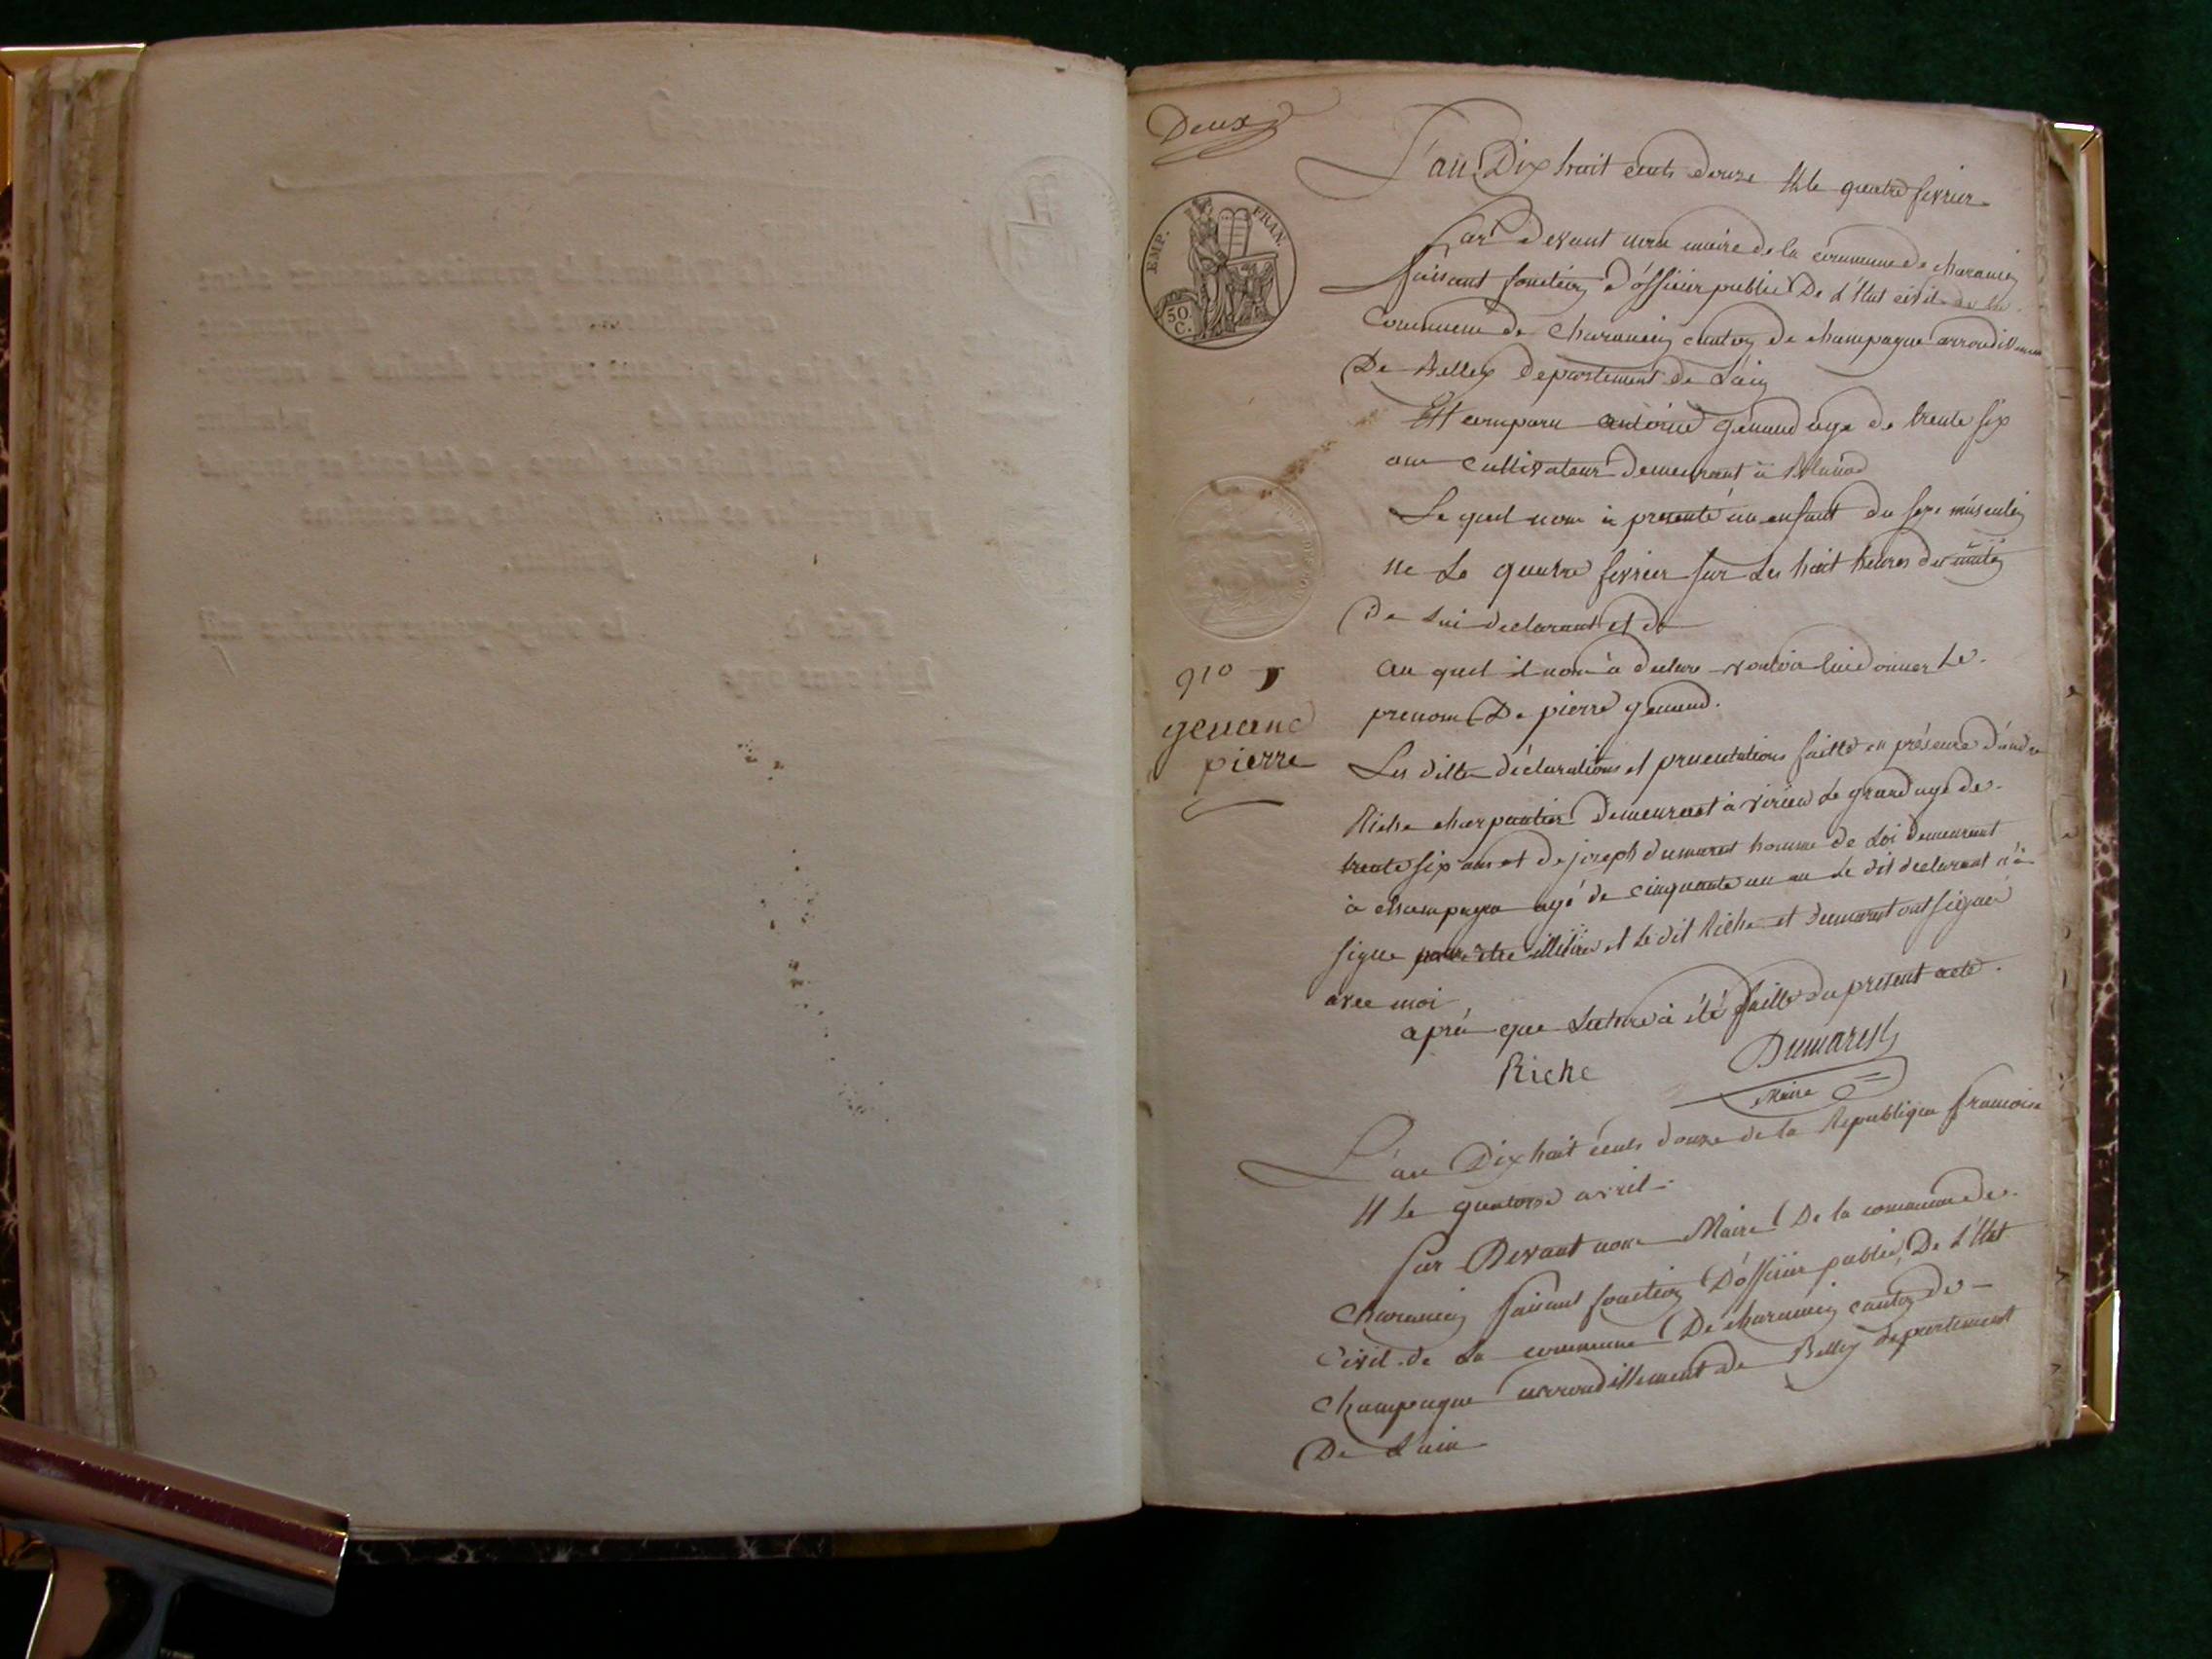 Deux
EMP. FRAN.
50
C.
L'an Dix huit cents douze et le quatre fevrier
Par devant nous maire de la commune de charancin
faisant fonction d'officier public De L'Etat civil de la
Commune de Charancin canton de champagne arrondissement
De Belley departement de Lain
Est comparu antoine genand age de trente six
ans Cultivateur demeurant à
Le quel nous à presenté un enfant du sexe masculin
ne Le quatre fevrier sur Les huit heures du matin
De Lui declarant et de
Au quel il nous à declare vouloir lui donner Le
prenom De pierre genand.
no 1
genand
pierre
Les dittes déclarations et presentations faitte en présence d'andre
Riche charpentier Demeurant à virieu Le grand age de
trente six ans et de joseph dumarest homme de Loi demeurant
à champagne agé de cinquante un an Le dit declarant n'a
signe pour etre illitéré et Le dit Riche et dumarest ont signé
avec moi
après que Lecture à été faitte du present acte.
Riche
Dumarest
Maire
L'an Dix huit cents douze de la Republique francoise
et Le quatorse avril.
Par Devant nous Maire De la commune de
Charancin faisant fonction D'officier public De L'Etat
Civil de La commune De charancin canton de
Champagne arrondissement de Belley departement
De L'ain